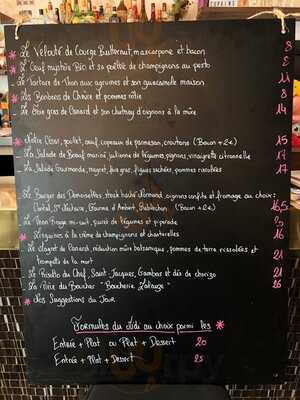 * Le Velouté de Courge Butternut, mascarpone et bacon 8
* L'Oeuf mystère Bio et sa poêlée de champignons au pesto
Le Tartare de Thon aux agrumes et son guacamole maison 11
* Les Bonbons de Chèvre et pommes rôtie 8
Le Foie gras de Canard et son chutney d'oignons à la mûre 14
* César, poulet, oeuf, copeaux de parmesan, croutons (Bacon +2€) 15
La Salade de Boeuf mariné, julienne de légumes, pignons, vinaigrette citronnelle 17
La Salade Gourmande, magret, foie gras, figues séchées, pommes rissolées 17
Le Burger des Demoiselles, steak haché, oignons confits et fromage au choix:
Cantal, St Nectaire, Fourme d'Ambert, Reblochon. (Bacon +2€) 16,5
Le Thon Rouge mi-cuit, purée de légumes et piperade
* Linguines à la crème de champignons et chanterelles 16
Le Magret de Canard, réduction mûre balsamique, pommes de terre rissolées et
trompette de la mort 21
Le Risotto du Chef, Saint Jacques, Gambas et dés de chorizo 21
La Pièce du Boucher "Boucherie
* Nos Suggestions du Jour
Formules du Midi au choix parmi les *
Entrée + Plat ou Plat + Dessert 20
Entrée + Plat + Dessert 25